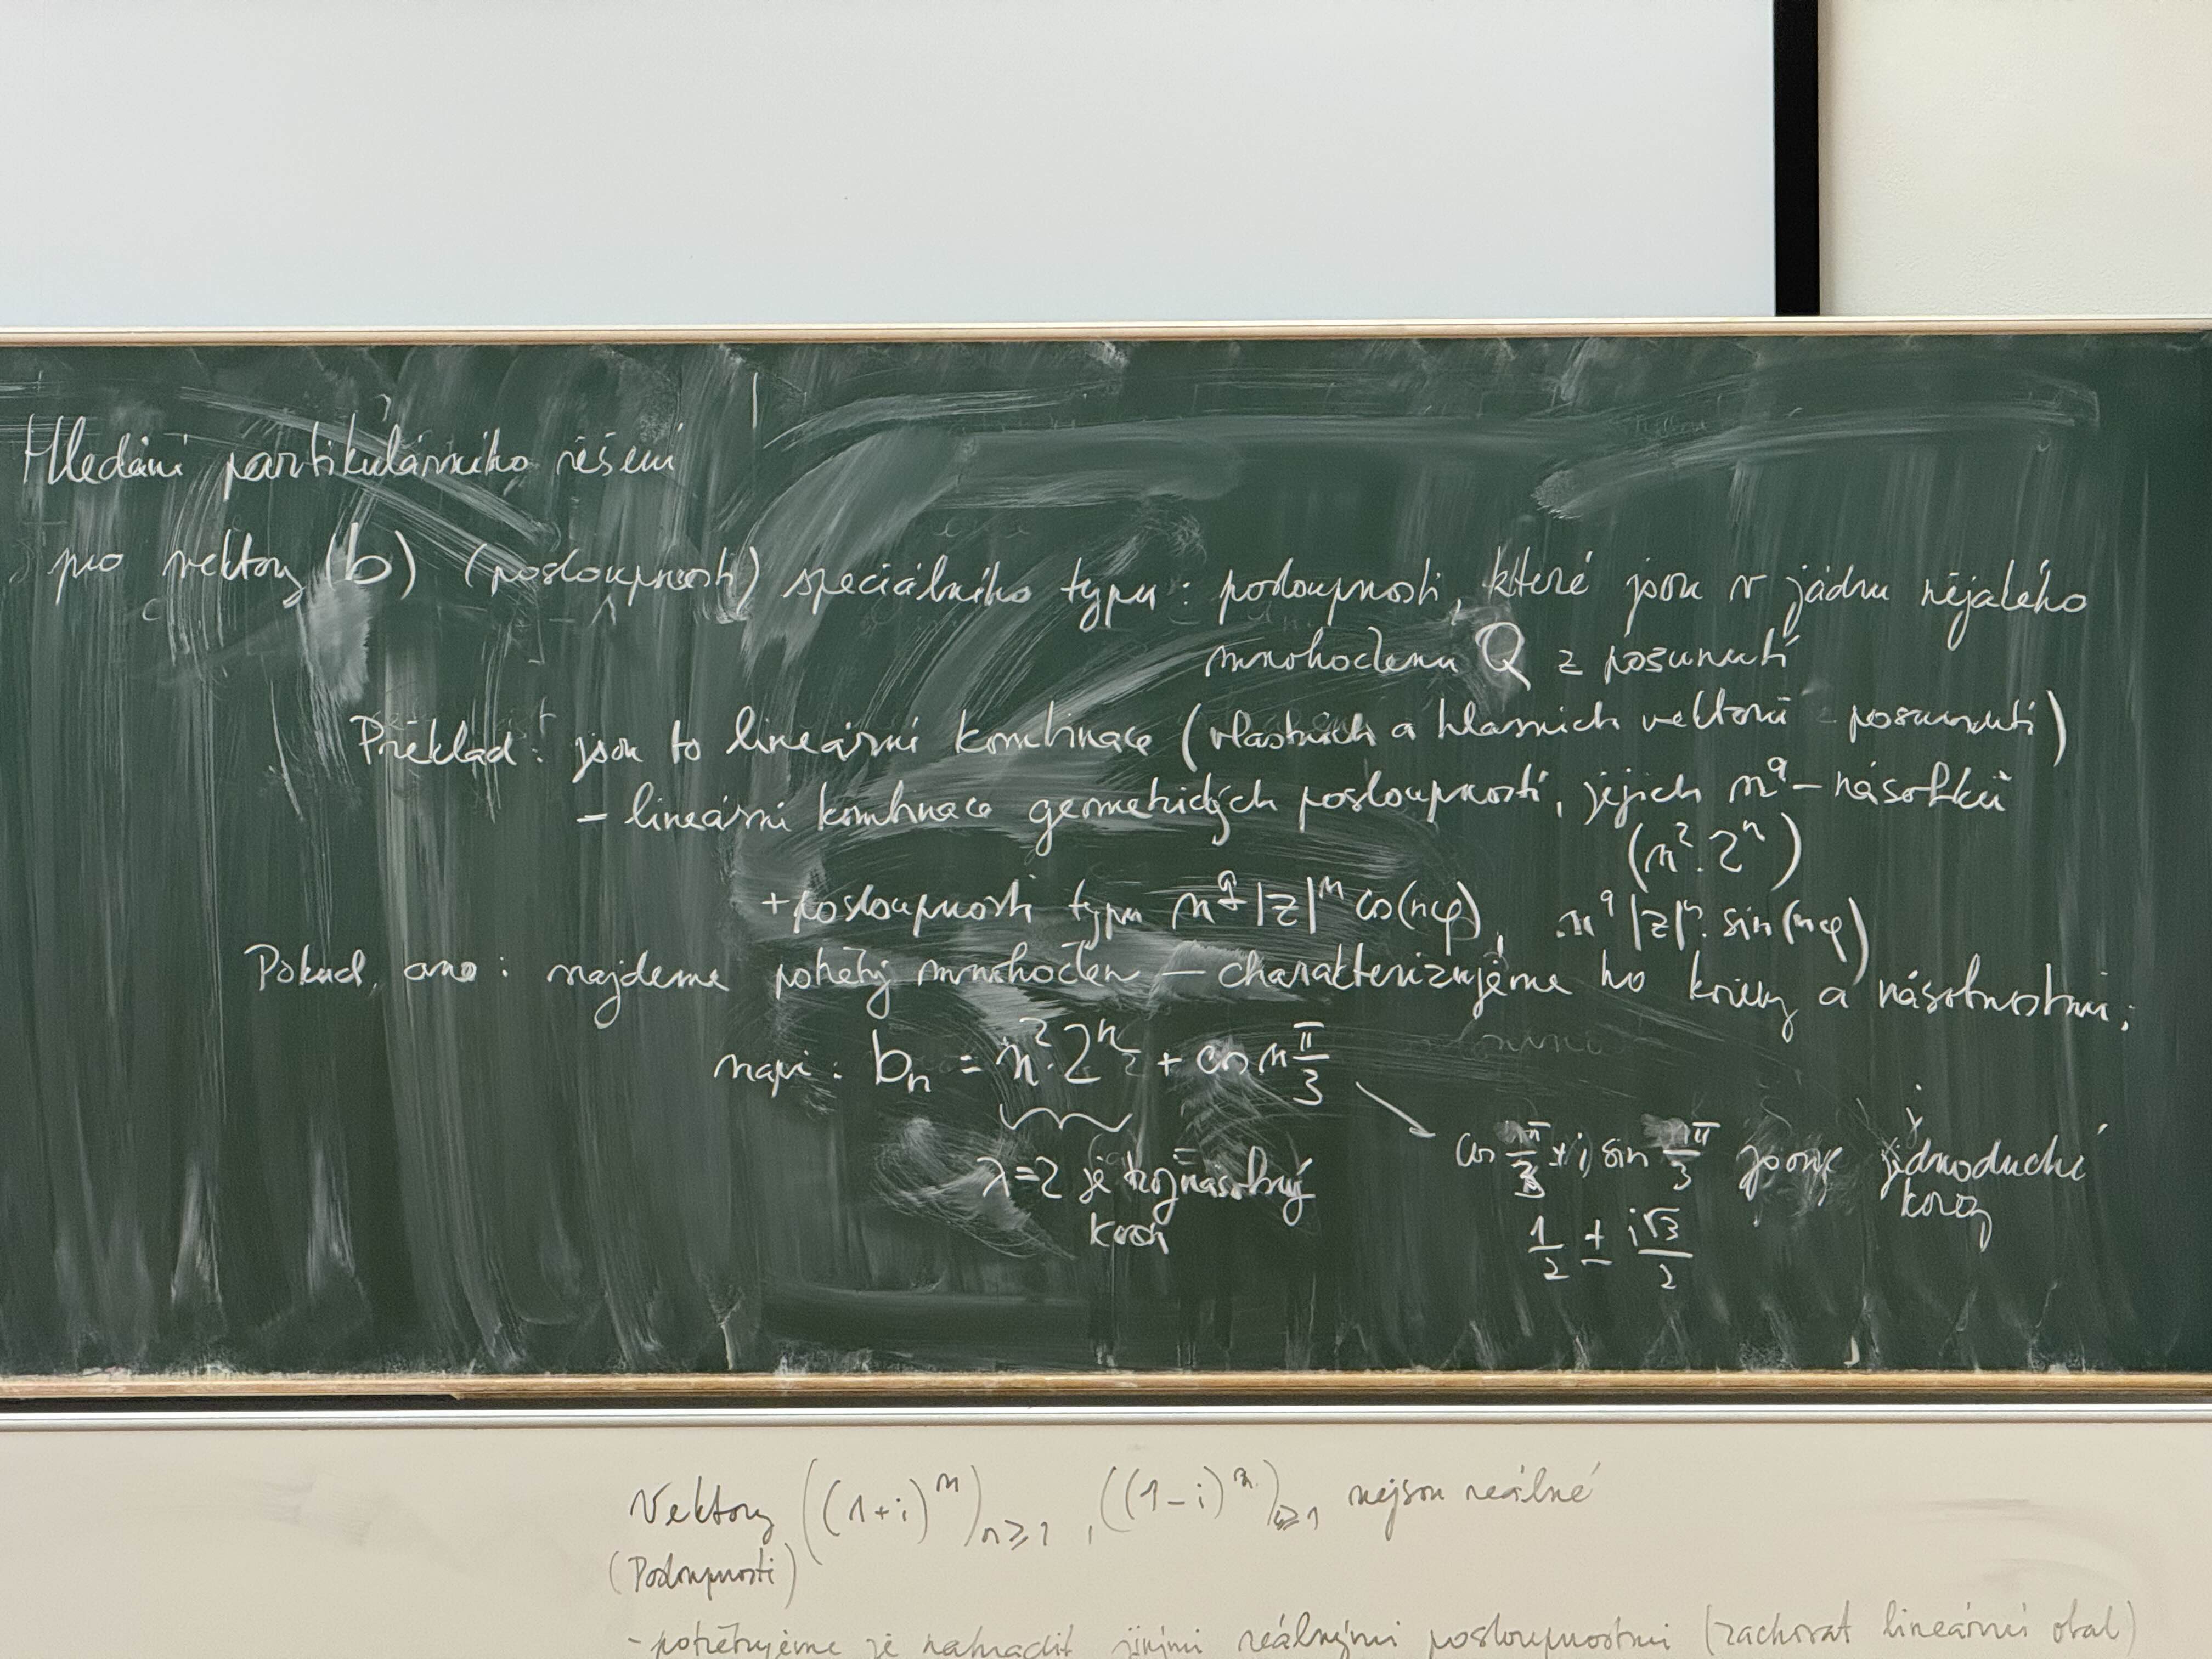 Hledání partikulárního řešení
pro vektory (b) (posloupnosti) speciálního typu: posloupnosti, které jsou v jádru nějakého
mnohočlenu Q z posunutí
Překlad: jsou to lineární kombinace (vlastních a hlavních vektorů posunutí)
- lineární kombinace geometrických posloupností, jejich n^q - násobků
(n^2 . 2^n)
+ posloupnosti typu n^q |z|^n cos(nφ), n^q |z|^n sin(nφ)
Pokud ano: najdeme potřebný mnohočlen — charakterizujeme ho kořeny a násobnostmi;
např: b_n = n^2 . 2^n + cos n π/3
λ=2 je trojnásobný
kořen
cos π/3 ± i sin π/3 jsou jednoduché
kořeny
1/2 ± i√3/2
Vektory ((1+i)^n)_{n≥1}, ((1-i)^n)_{n≥1} nejsou reálné
(Posloupnosti)
- potřebujeme je nahradit jinými reálnými posloupnostmi (zachovat lineární obal)